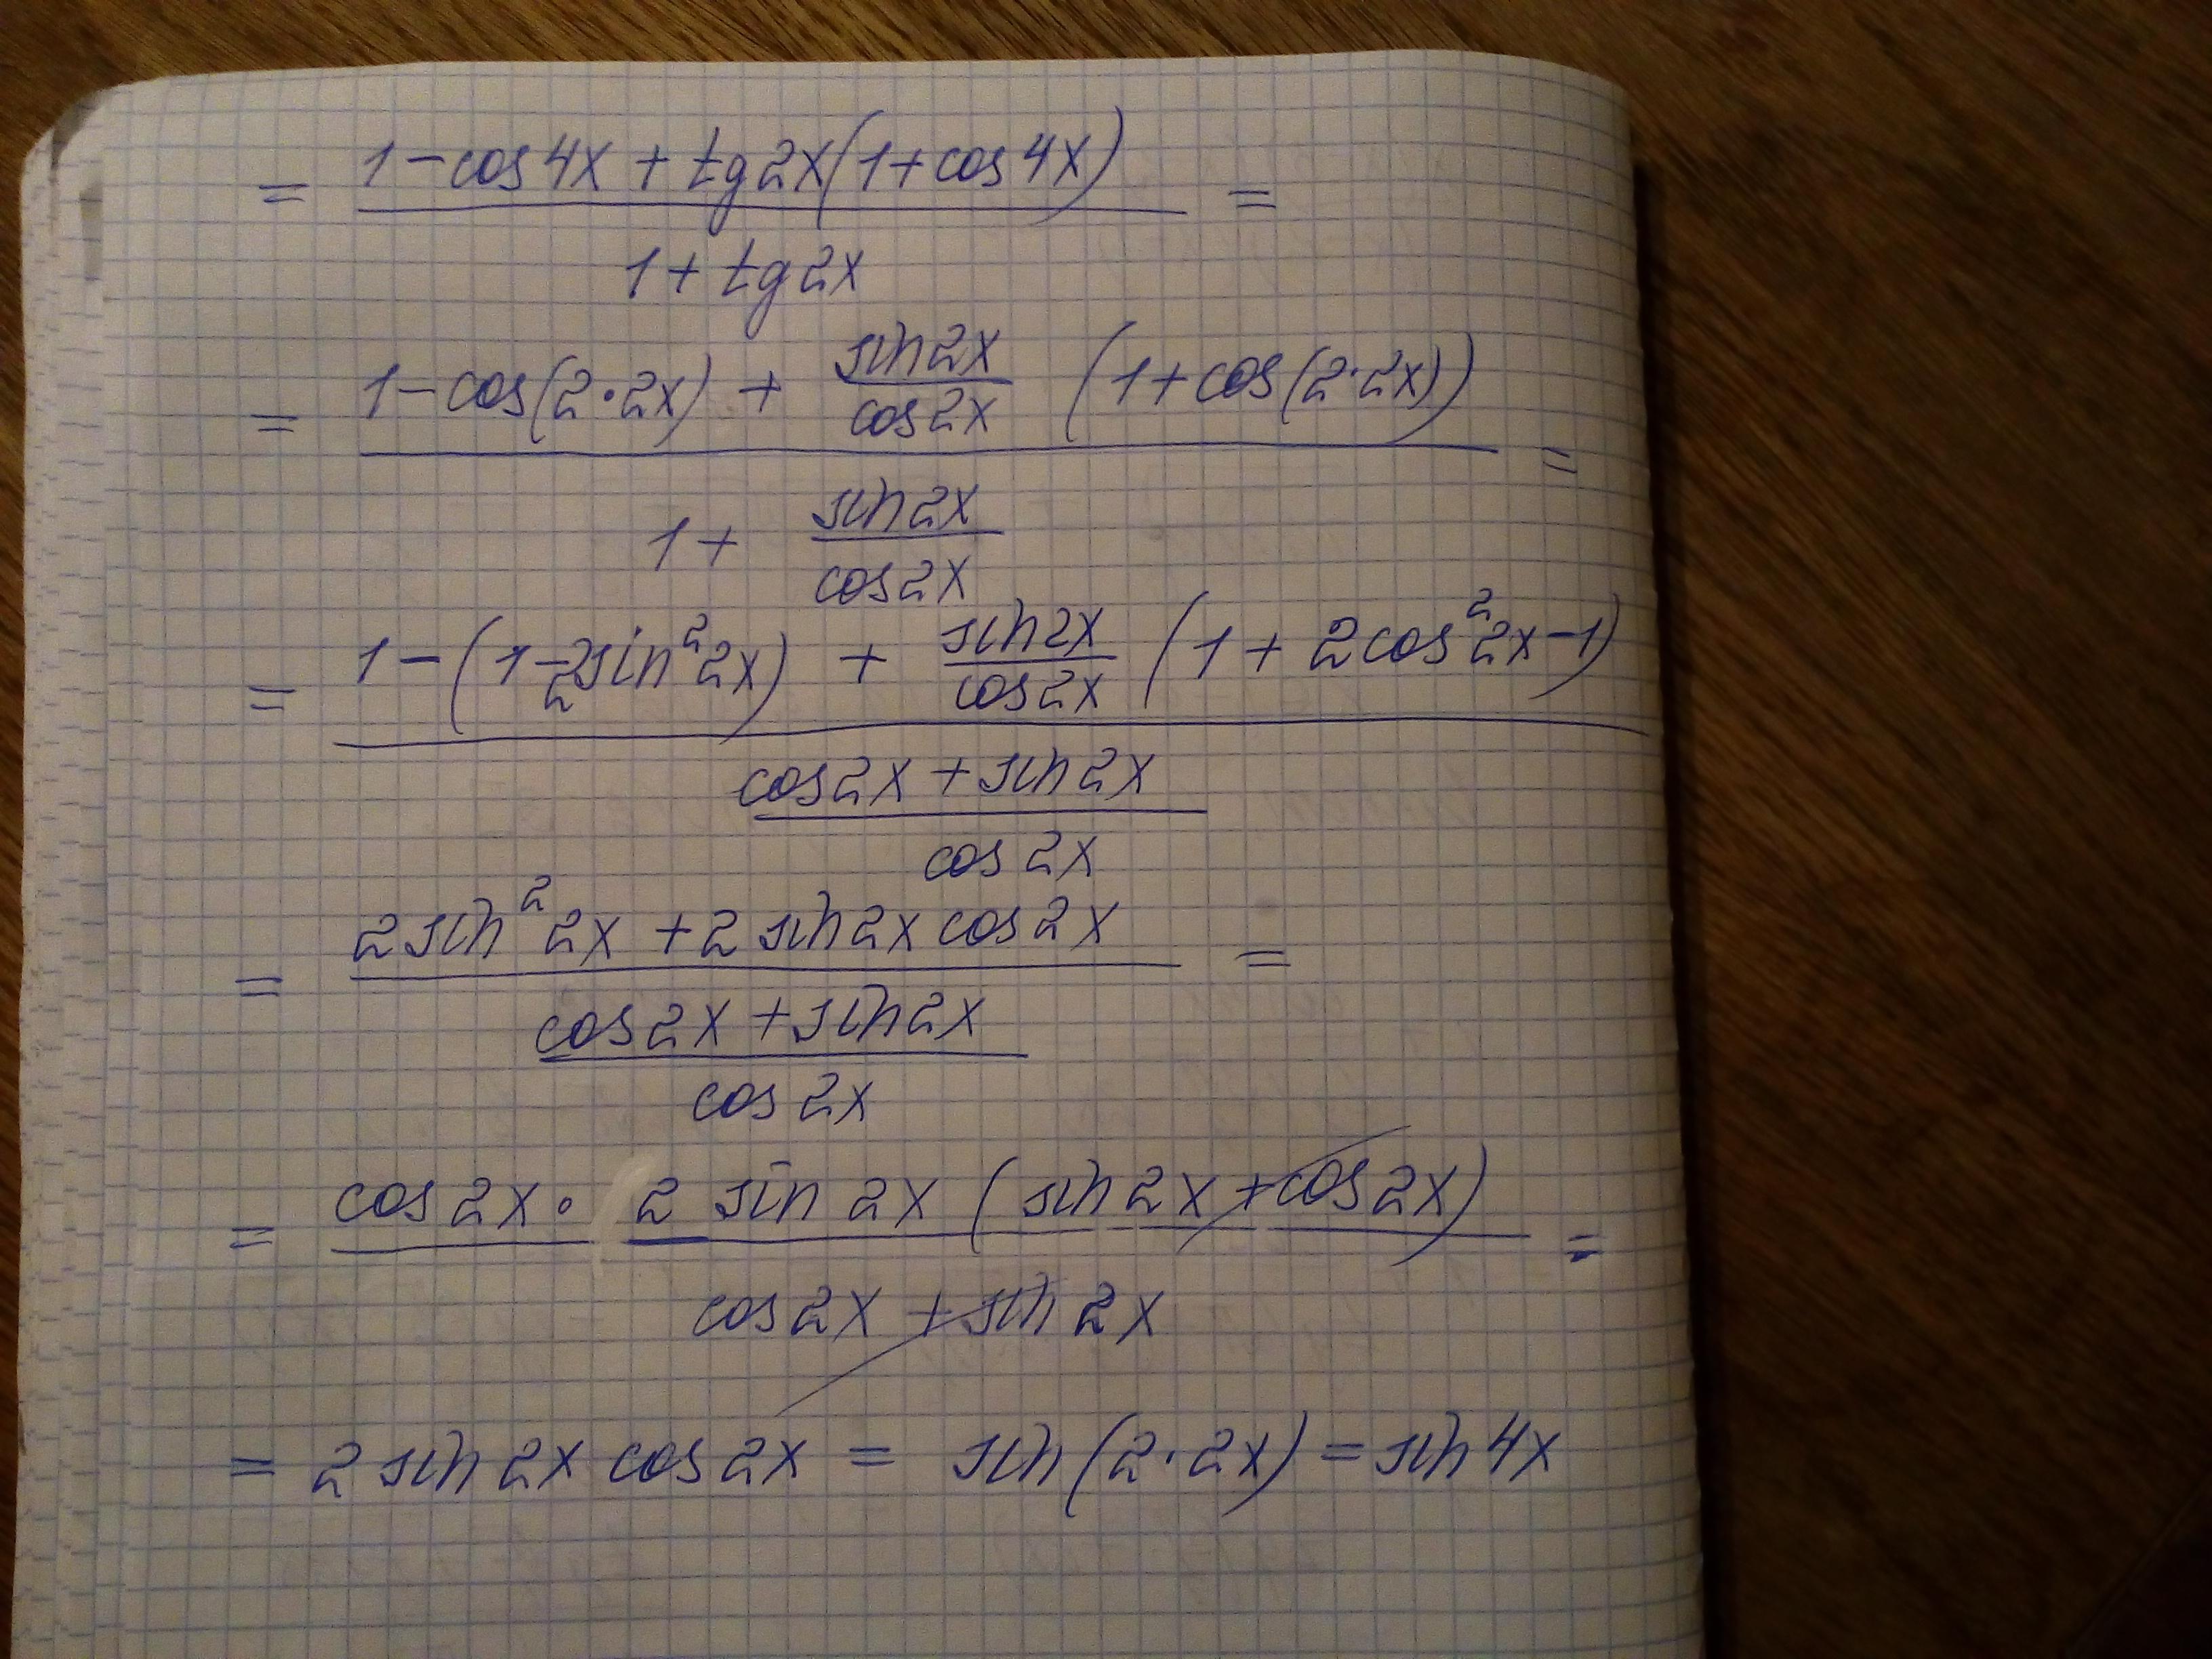 = 1-cos4x + tg2x(1+cos4x) =
1+ tg2x
sin2x
= 1-cos(2·2x) + (1+cos(2·2x)) =
cos2x
sin2x
1+
cos2x
= 1-(1-2sin²2x) + sin2x (1+2cos²2x-1)
cos2x
cos2x+sin2x
cos2x
= 2sin²2x +2sin2x cos2x =
cos2x+sin2x
cos2x
= cos2x· 2 sin2x (sin2x+cos2x) =
cos2x +sin2x
= 2sin2x cos2x = sin(2·2x) = sin4x